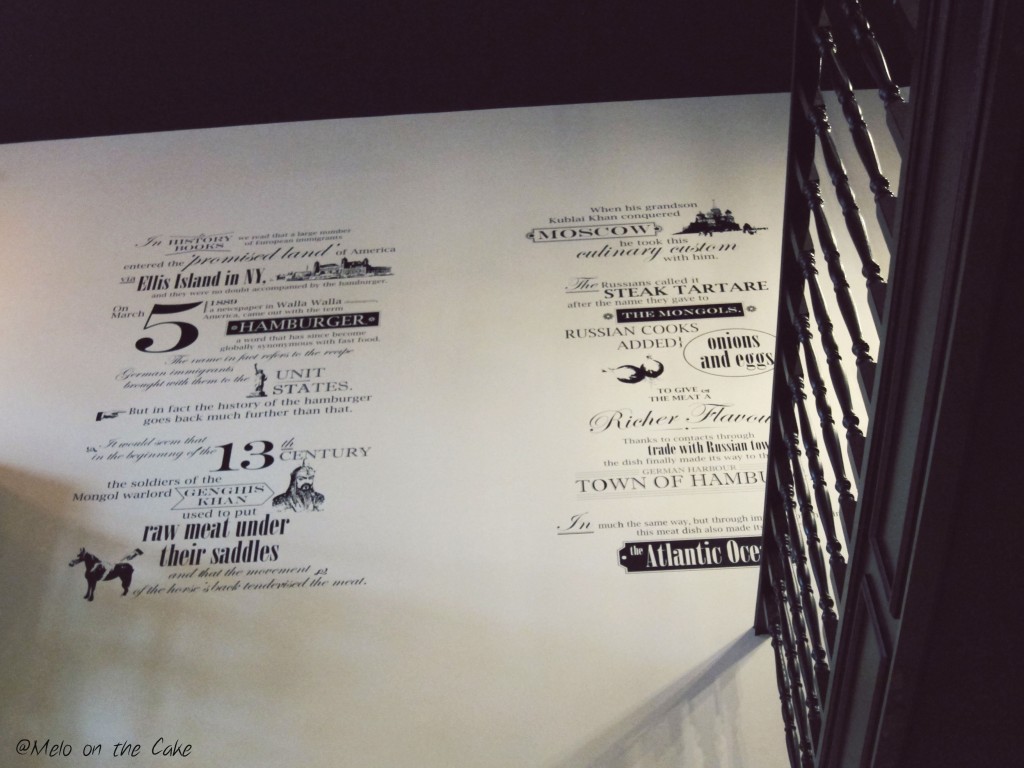 In HISTORY BOOKS we read that a large number
of European immigrants
entered the 'promised land' of America
via Ellis Island in NY.
and they were no doubt accompanied by the hamburger.
On March 5 1889
a newspaper in Walla Walla
America, came out with the term
HAMBURGER
a word that has since become
globally synonymous with fast food.
The name in fact refers to the recipe
German immigrants
brought with them to the UNIT
STATES.
But in fact the history of the hamburger
goes back much further than that.
It would seem that
in the beginning of the 13th CENTURY
the soldiers of the
Mongol warlord GENGHIS KHAN
used to put
raw meat under
their saddles
and that the movement
of the horse's back tenderised the meat.
When his grandson
Kublai Khan conquered
MOSCOW
he took this
culinary custom
with him.
The Russians called it
STEAK TARTARE
after the name they gave to
THE MONGOLS.
RUSSIAN COOKS
ADDED
onions
and eggs
TO GIVE
THE MEAT A
Richer Flavou
Thanks to contacts through
trade with Russian tow
the dish finally made its way to th
GERMAN HARBOUR
TOWN OF HAMBU
In much the same way, but through im
this meat dish also made its
the Atlantic Oce
@Melo on the Cake